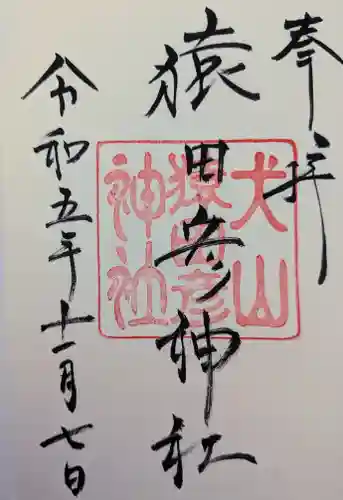 奉拝
猿田彦神社
令和五年十一月七日
犬山
猿田彦
神社